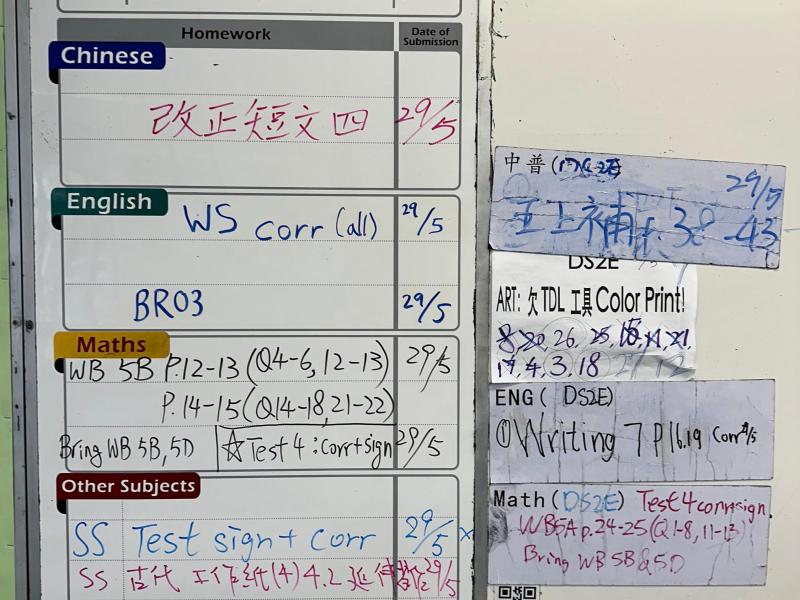 Homework Date of Submission
Chinese
改正短文四 29/5
English
WS corr (all) 29/5
BR03 29/5
Maths
WB 5B P.12-13 (Q4-6, 12-13) 29/5
P.14-15 (Q14-18, 21-22)
Bring WB 5B, 5D ☆Test 4: Corr+sign 29/5
Other Subjects
SS Test sign + corr 29/5
SS 古代 工作紙(4) 4.2 延伸 29/5
中普(
29/5
上補 38-43
DS2E
ART: 欠 TDL 工具 Color Print!
26, 25,
17, 4, 3, 18
ENG ( DS2E)
①Writing 7 P 16.19 Corr
Math (DS2E) Test 4 corr+sign.
WB5A p.24-25 (Q1-8, 11-13)
Bring WB 5B & 5D